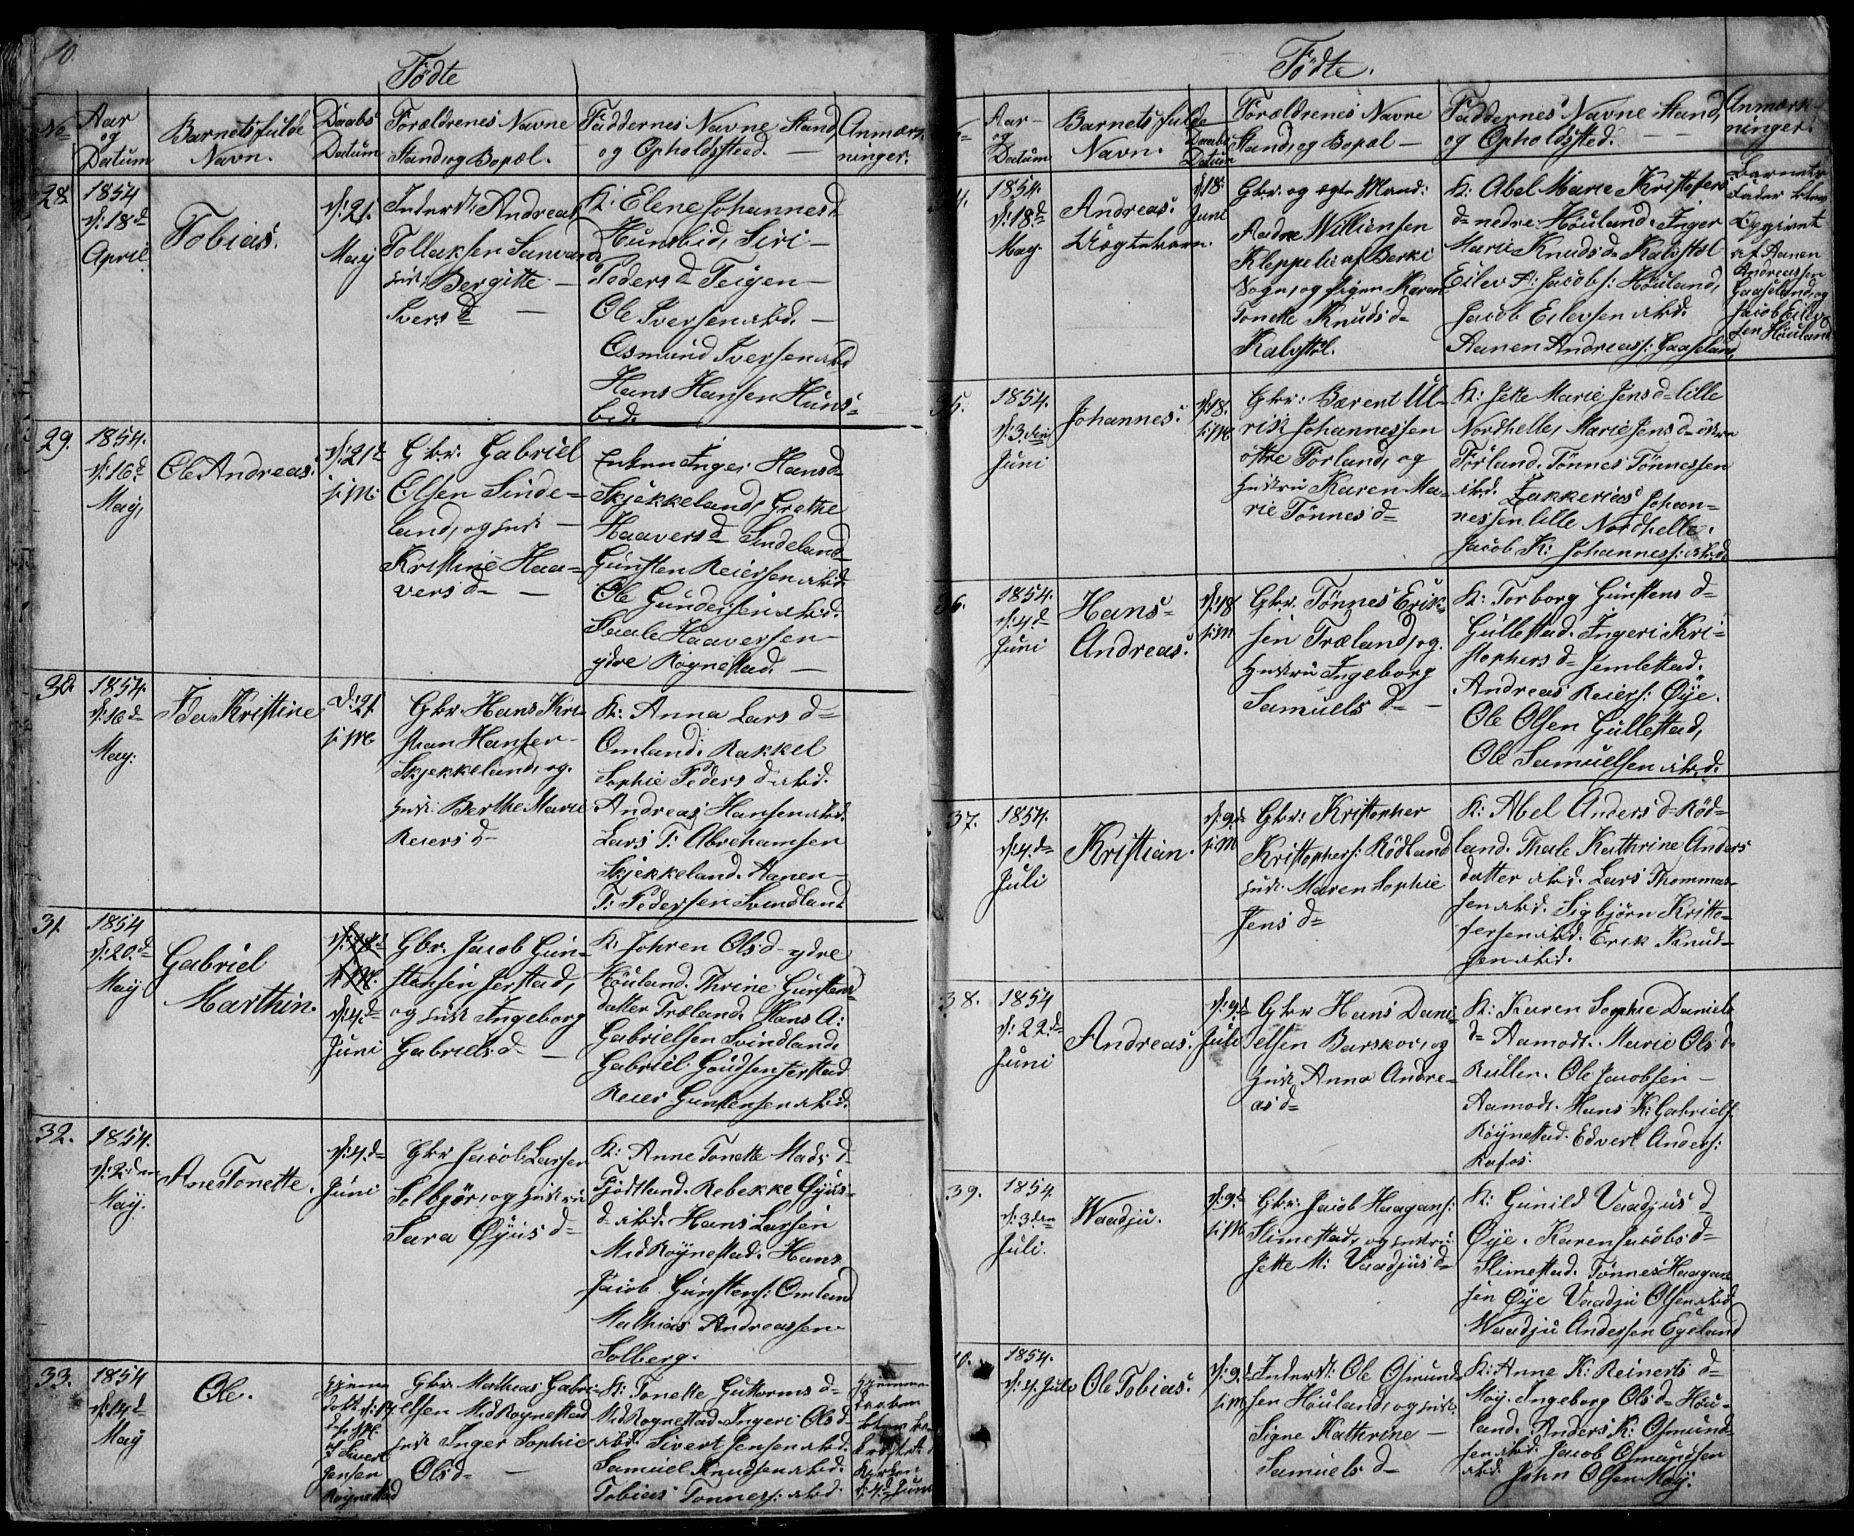 10.
Födte
No
Aar
og
Datum
Barnets fulde
Navn.
Daabs
Datum
Forældrenes Navne
Stand, og Bopæl.
Faddernes Navne Stand
og Opholdssted.
Anmærk-
ninger.
28.
1854
d: 18d
April
Tobias.
d: 21.
May
Inderst: Andreas
Tollaksen
Bergitte
Ivers d
K: Elene Johannes d
Hunsbid, Siri
Peders d Teigen
Ole Iversen ibid.
Osmund Iversen ibid
Hans Hansen Huns-
bed.
29.
1854.
d: 16d
May,
Ole Andreas.
d: 21d
s: M:
Gbr. Gabriel
Olsen Sinde-
land, og hust
Kristine Haa-
vers d
Enken Inger Hans d
Skjekkeland, Grethe
Haavers d Sindeland
Gunsten Reiersen ibid.
Ole Gundersen ibid.
Saale Haaversen
ydre Röynestad.
30.
1854.
d: 16d
May.
Ida Kristine
d: 21
s: M
Gbr. Hans Kri-
stian Hansen
Skjekkeland, og
hust: Berthe Marie
Reiers d
K: Anna Lars d
Omland. Rakkel
Sophie Peders d ibid.
Andreas Hansen ibid.
Lars T: Abrehamsen
Skjekkeland. Aanen
T: Pedersen Svindland
31.
1854
d: 20d
May
Gabriel
Marthin.
d: 4d
Juni
Gbr. Jacob Gun-
stensen Jerstad,
og hust Ingeborg
Gabriels d
K: Johren Ols d ydre
Höuland. Thrine Gunstens-
datter Træland. Hans A:
Gabrielsen Svindland.
Gabriel Goudsen Jerstad
Reier Gunstensen ibid.
32.
1854.
d: 2den
May.
Ane Tonette.
d: 4d
Juni
Gbr Jacob Larsen
Selbjör, og hustru
Sara Öyus d
K: Anne Tonette Mads d
Tjödtland. Rebekke Öyus-
d ibid. Hans Larsen
Mid Röynestad. Hans
Jacob Gunstens: Omland
Mathias Andreassen
Solberg.
33.
1854
d: 14d
May
Ole.
Hjemme
döbt d: 14
af Sivert
Jensen
Röynestad
Gbr Mathias Gabri-
elsen Mid Röynestad
hust Inger Sophie
Ols d
K: Tonette Guttorms d
Mid Röynestad. Ingeri Ols d
ibid. Sivert Jensen ibid.
Samuel Knudsen ibid.
Tobias Tonnes: ibid.
Hjemme
daaben
blev
Kirken
d: 4d Juni
Födte.
Aar
og
Datum
Barnets fulde
Navn.
Daabs
Datum
Forældrenes Navne
Stand, og Bopæl
Faddernes Navne Stand,
og Opholdssted.
Anmærk-
ninger.
4.
1854.
d: 18d
May.
Andreas.
Uægtebarn.
d: 18.
Juni
Gbr. og egte Mand:
Aadne Williensen
Kleppelie af
Sogn, og Pigen Karen
Tonette Knuds d
Kalvstöl.
K: Abel Marie Kristofers
d nedre Höuland. Inger
Marie Knuds d Kalvstöl
Eilev A: Jacobs: Höuland,
Jacob Eilevsen ibid.
Aanen Andreass: Gaaseland,
Barnets
Fader blev
Opgivet
af Aanen
Andreassen
Gaaseland, og
Jacob Eilev-
sen Höuland
35.
1854.
d: 3den
Juni
Johannes.
d: 18.
s: M
Gbr: Bærent Ul-
rik Johannessen
östre Förland, og
hustru Karen Ma-
rie Tönnes d
K: Jette Marie Jens d lille
Nordhelle, Marie Jens d östre
Förland. Tönnes Tönnessen
ibid. Zakkerias Johan-
nessen lille Nordhelle.
Jacob K: Johanness: ibid.
36.
1854.
d: 4d
Juni
Hans
Andreas.
d: 18
s: M
Gbr. Tönnes Erik-
sen Træland, og
hustru Ingeborg
Samuels d
K: Torborg Gunstens d
Gullestad. Ingeri Kri-
stophers d Jemlestad.
Andreas Reiers: Öye.
Ole Olsen Gullestad,
Ole Samuelsen ibid.
37.
1854.
d: 4d
Juli
Kristian.
d: 9d
s: M
Gbr: Kristopher
Kristophers: Rödland
hust. Maren Sophie
Jens d
K: Abel Anders d Röd-
land. Thale Kathrine Anders
datter ibid. Lars Thommas-
sen ibid. Sigbjörn Kristo-
fersen ibid. Erik Knud-
sen ibid.
38.
1854
d: 22d
Juni
Andreas.
d: 9d
Juli
Gbr Hans Dani-
elsen Barskor, og
hust Anna Andre-
as d
K: Karen Sophie Daniels
d Aamodt. Marie Ols d
Rullen. Ole Jacobsen
Aamodt. Hans K: Gabriels:
Röynestad. Edvert Anders:
Refos.
39.
1854.
d: 3den
Juli.
Waadju.
d: 9d
s: M
Gbr: Jacob Haagens:
Slimestad, og hustru
Jette M: Vaadjus d
K: Gunild Vaadjus d
Öye. Karen Jacobs d
Slimestad. Tönnes Haagen-
sen Öye Vaadju Olsen ibid
Waadju Andersen Egeland
40.
1854.
d: 4 Juli
Ole Tobias.
d: 9d
s: M
Inderst: Ole Osmund-
sen Höuland, og hust:
Signe Kathrine
Samuels d
K: Anne K: Reinerts d
Möy. Ingeborg Ols d Höu-
land. Anders K: Osmund-
sen ibid. Jacob Osmundsen
ibid. John Olsen Möy.